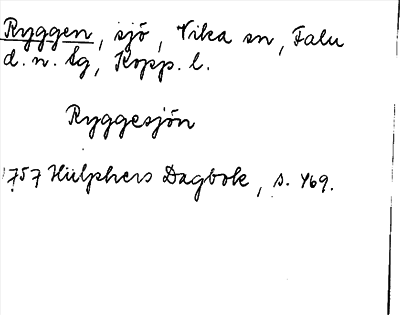 Ryggen, sjö, Vika sn, Falu
d. n. tg, Kopp. l.
Ryggesjön
1757 Hülphers Dagbok, s. 469.